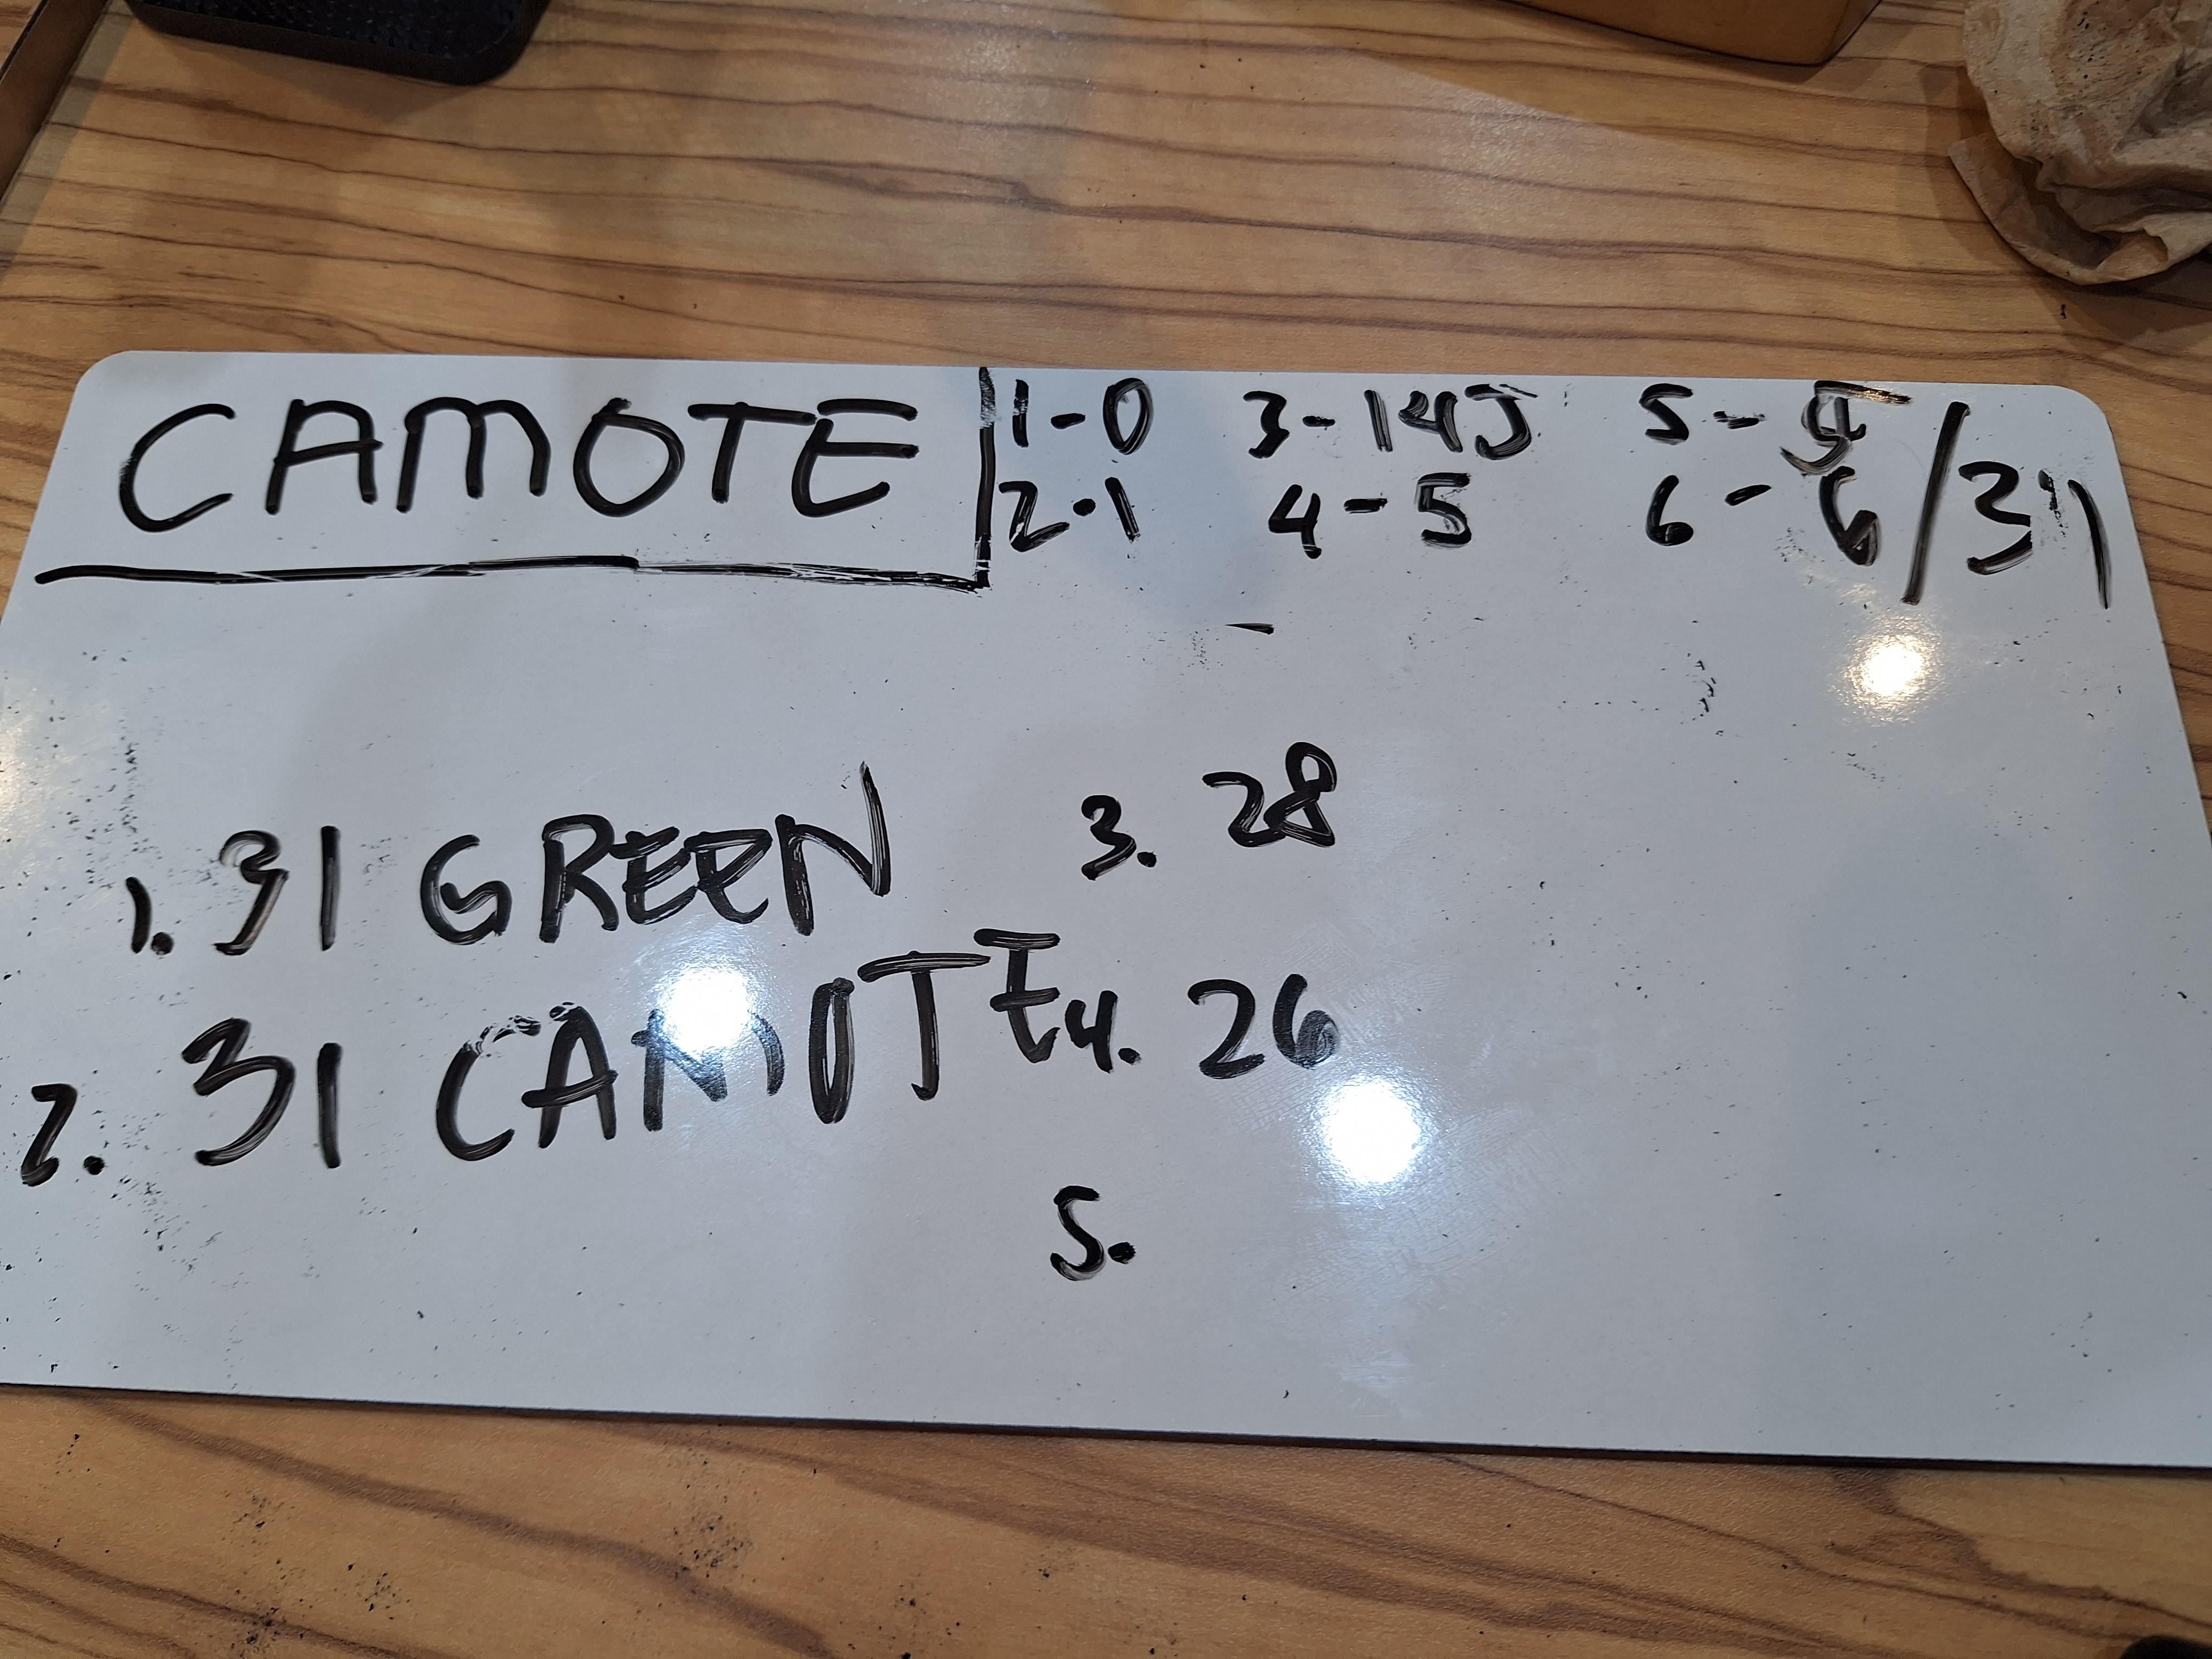 CAMOTE
1-0 3-14J 5-
2-1 4-5 6-6 /31
1. 31 GREEN 3. 28
2. 31 CAMOTE 4. 26
5.